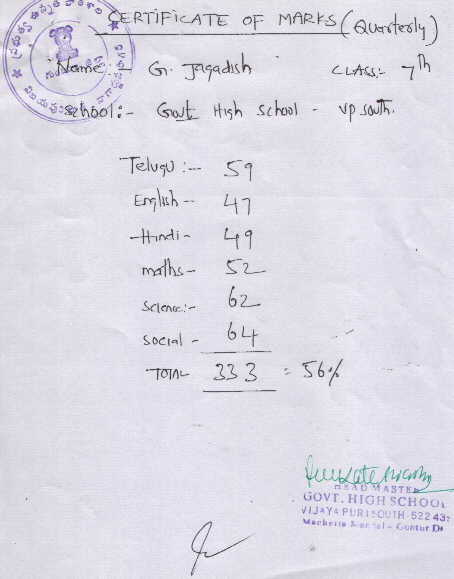 CERTIFICATE OF MARKS (Quarterly)
Name - G. Jagadish CLASS:- 7th
School:- Govt High School - VP South.
Telugu :-- 59
English -- 47
Hindi - 49
maths - 52
Science:- 62
Social - 64
TOTAL 333 = 56%
HEAD MASTER
GOVT. HIGH SCHOOL
VIJAYA PURI SOUTH-522 43
Macherla Mandal - Guntur Dt